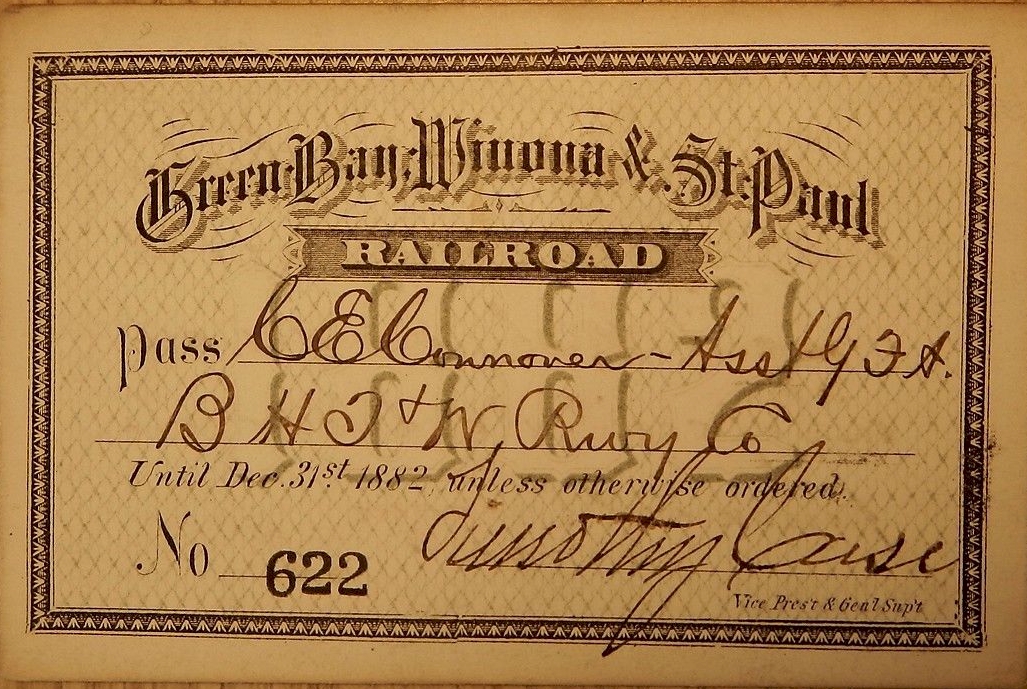 Green Bay, Winona & St. Paul
RAILROAD
Pass C E Connover - Asst G F A.
B H T & W, Rwy Co
Until Dec. 31st. 1882, unless otherwise ordered.
No 622 Timothy Case
Vice Pres't & Gen'l Sup't